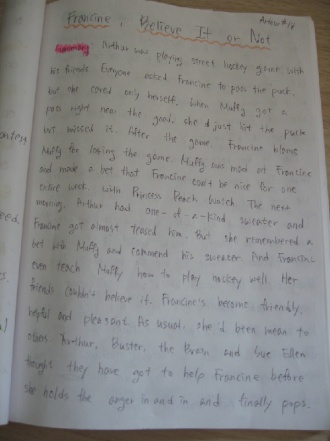 Arthur #14
Francine, Believe It or Not
Summary Arthur was playing street hockey game with
his friends. Everyone asked Francine to pass the puck,
but she cared only herself. When Muffy got a
pass right near the goal, she'd just let the puck
but missed it. After the game, Francine blame
Muffy for losing the game. Muffy was mad at Francine
and made a bet that Francine could't be nice for one
entire week. with Princess Peach Watch. The next
morning, Arthur had one-of-a-kind sweater and
Francine got almost teased him. But she remembered a
bet with Muffy and commend his sweater. And Francine
even teach Muffy how to play hockey well. Her
friends couldn't believe it. Francine's become friendly,
helpful and pleasant. As usual, she'd been mean to
others. Arthur, Buster, the Brain and Sue Ellen
thought they have got to help Francine before
she holds the anger in and in and finally pops.